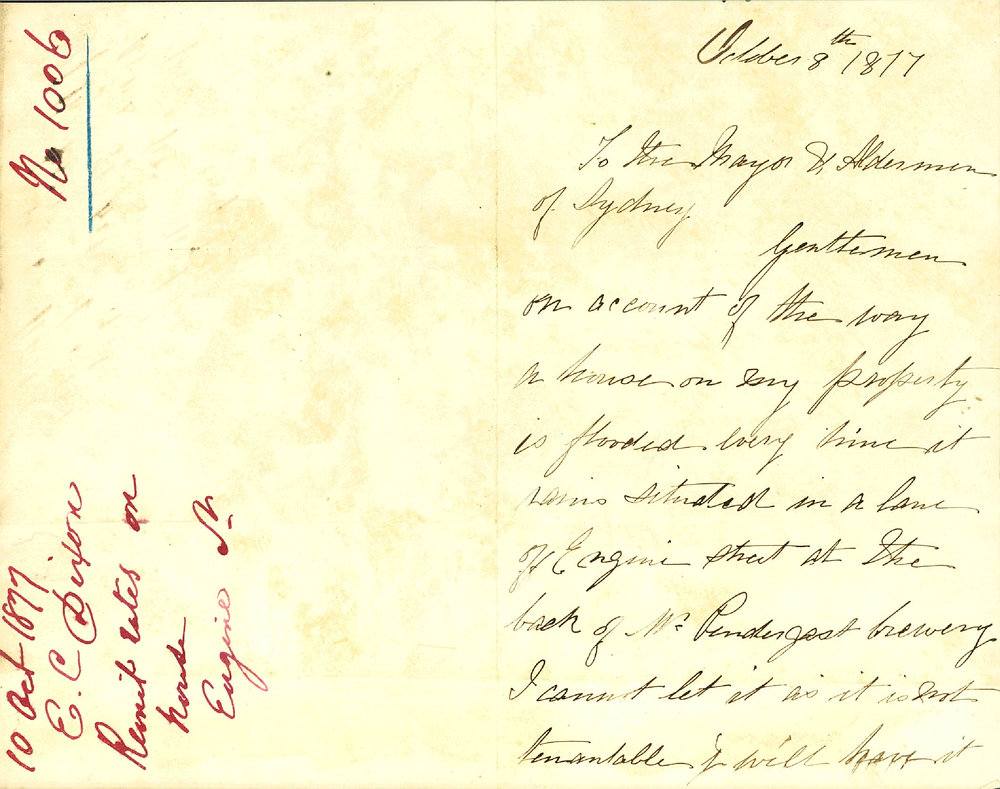 No 1006
10 Oct 1877
E. C Dixon
Remit rates on
house
Engine St
October 8th 1877
To the Mayor & Aldermen
of Sydney
Gentlemen
on account of the way
a house on my property
is flooded every time it
rains situated in a lane
off Engine street at the
back of Mr Pendergast brewery
I cannot let it as it is not
tenantable & will have it